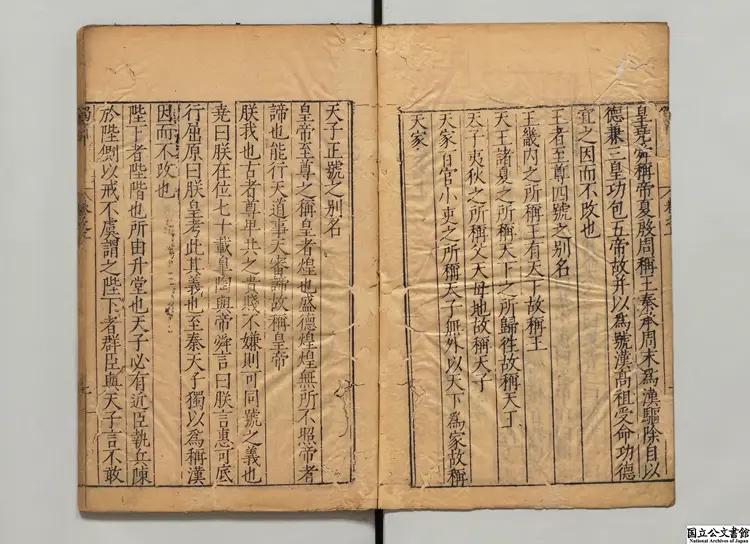 皇堯舜稱帝夏殷周稱王秦承周末為漢驅除自以
德兼三皇功包五帝故并以為號漢高祖受命功德
宜之因而不改也
王者至尊四號之別名
王畿內之所稱王有天下故稱王
天王諸夏之所稱天下之所歸徃故稱天王
天子夷狄之所稱父天母地故稱天子
天家百官小吏之所稱天子無外以天下為家故稱
天家
天子正號之別名
皇帝至尊之稱皇者煌也盛德煌煌無所不照帝者
諦也能行天道事天審諦故稱皇帝
朕我也古者尊卑共之貴賤不嫌則可同號之義也
堯曰朕在位七十載皐陶與帝舜言曰朕言惠可底
行屈原曰朕皇考此其義也至秦天子獨以為稱漢
因而不改也
陛下者陛階也所由升堂也天子必有近臣執兵陳
於陛側以戒不虞謂之陛下者群臣與天子言不敢
国立公文書館
National Archives of Japan